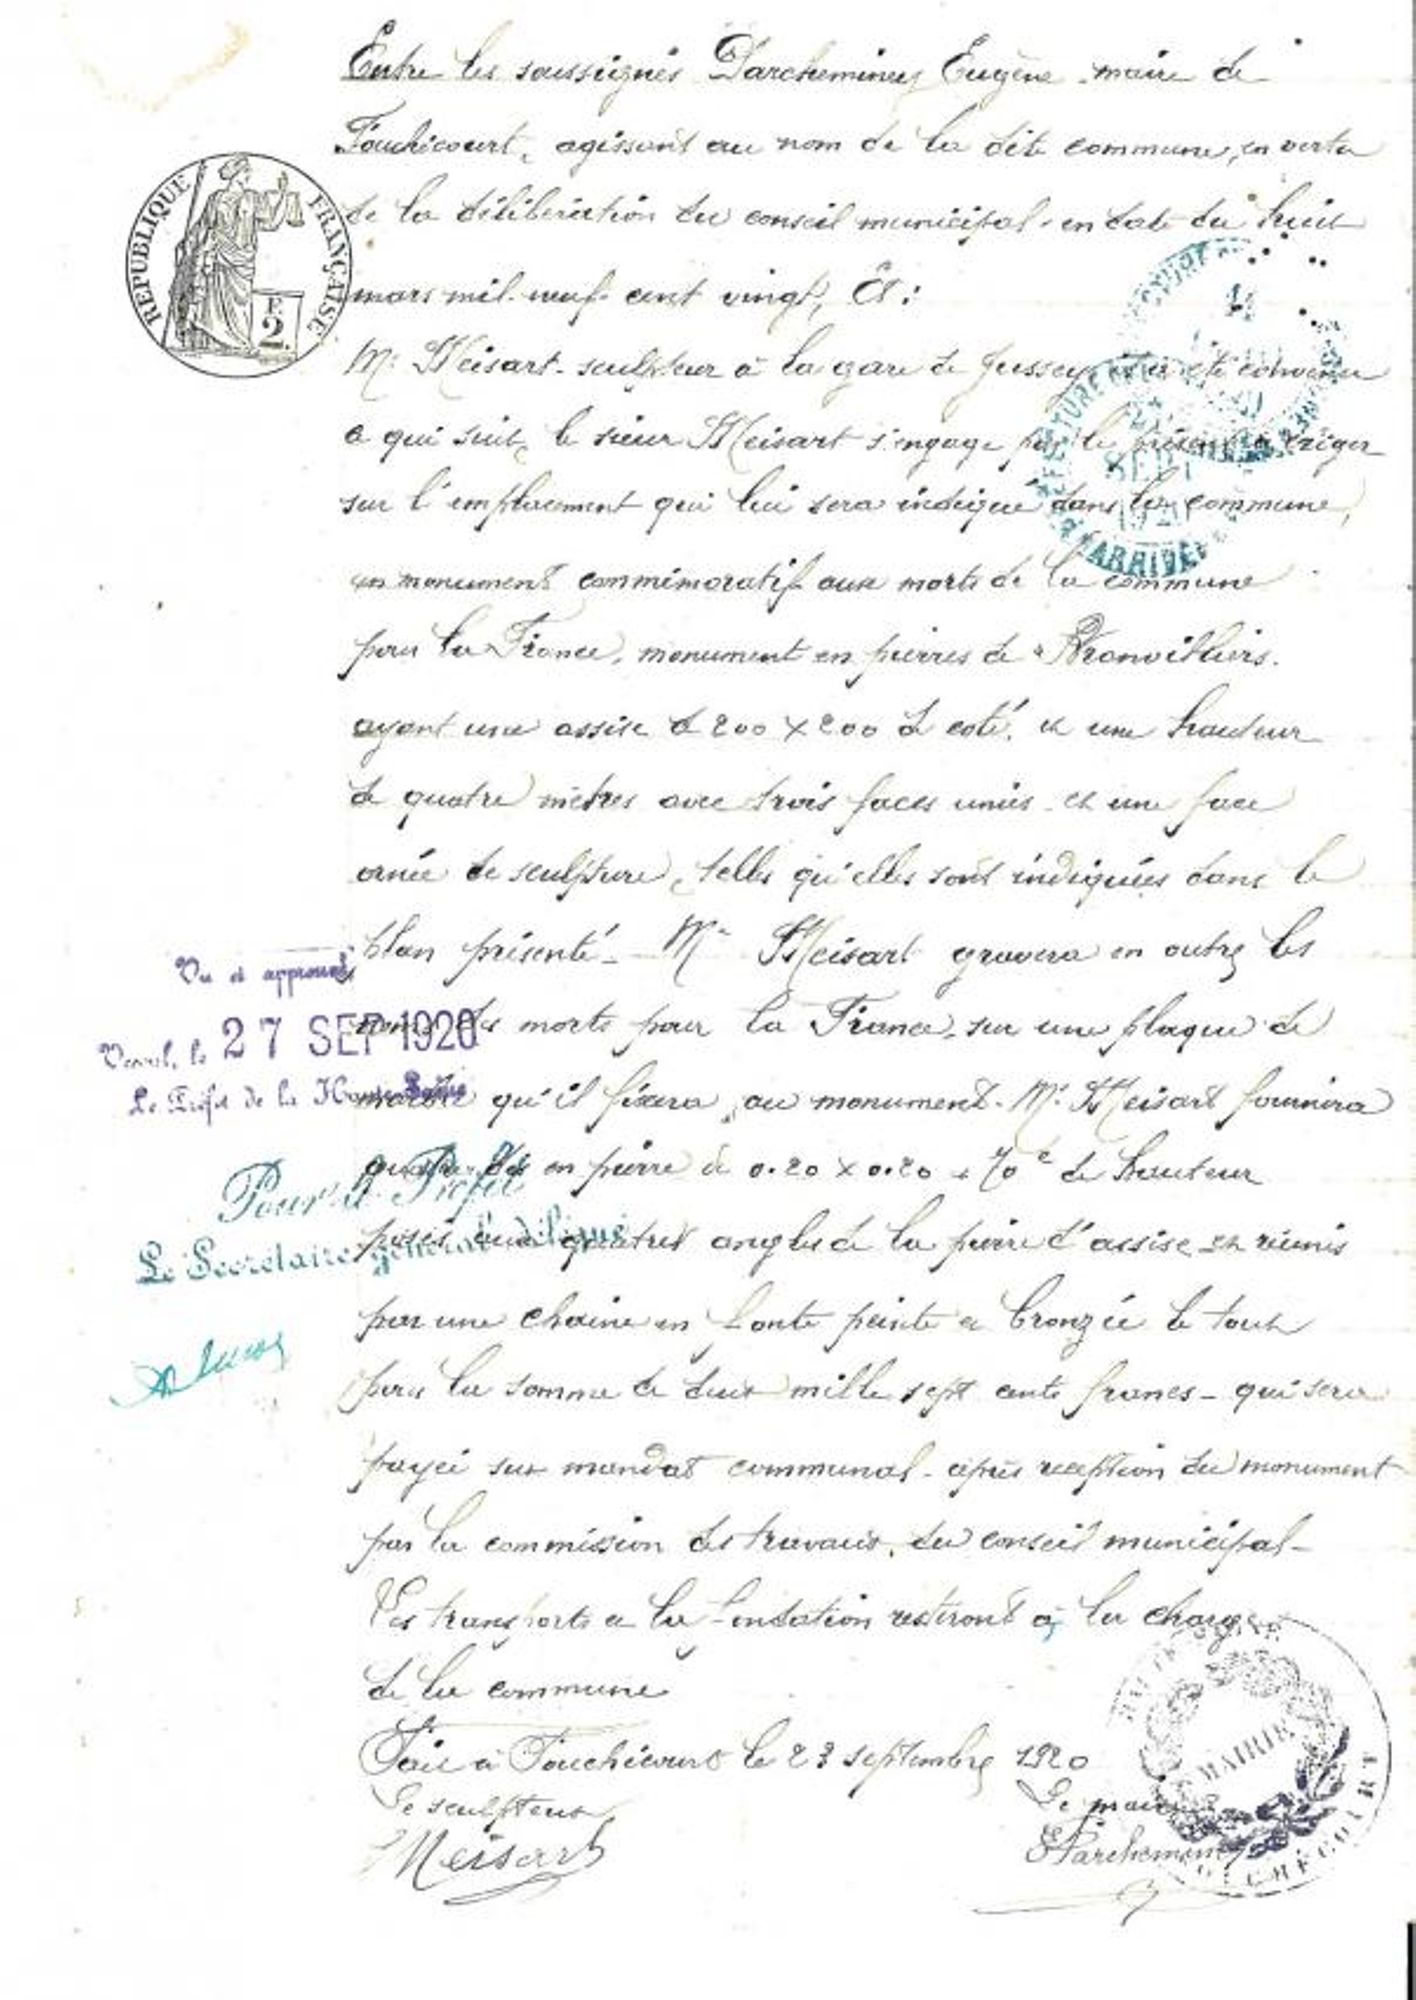 Entre les soussignés Parcheminey Eugène maire de
Fouchécourt, agissant au nom de la dite commune, en vertu
de la délibération du conseil municipal en date du huit
mars mil neuf cent vingt, Et:
REPUBLIQUE FRANÇAISE
F.
2.
Mr Meisart sculpteur à la gare de Jussey, il a été convenu
ce qui suit, le sieur Meisart s'engage par le présent à ériger
sur l'emplacement qui lui sera indiqué dans la commune,
ARRIVÉE
un monument commémoratif aux morts de la commune
pour la France, monument en pierres de
ayant une assise de 200 x 200 de coté, et une hauteur
de quatre mètres avec trois faces unies et une face
ornée de sculpture, telles qu'elles sont indiquées dans le
plan présenté - Mr Meisart gravera en outre les
Vu et approuvé
noms des morts pour la France, sur une plaque de
Vesoul, le 27 SEP 1920
Le Préfet de la Haute-Saône
marbre qu'il fixera au monument. Mr Meisart fournira
quatre dés en pierre de 0.20 x 0.20 70c de hauteur
Pour le Préfet
posés aux quatres angles de la pierre d'assise et réunis
Le Secrétaire général délégué
par une chaine en fonte peinte et bronzée le tout
pour la somme de deux mille sept cents francs - qui sera
payée sur mandat communal - après reception du monument
par la commission des travaux, du conseil municipal -
Les transports et la fondation resteront à la charge
de la commune
Fait à Fouchécourt le 23 septembre 1920
Le sculpteur
Le maire
Meisart
E Parcheminey
MAIRIE